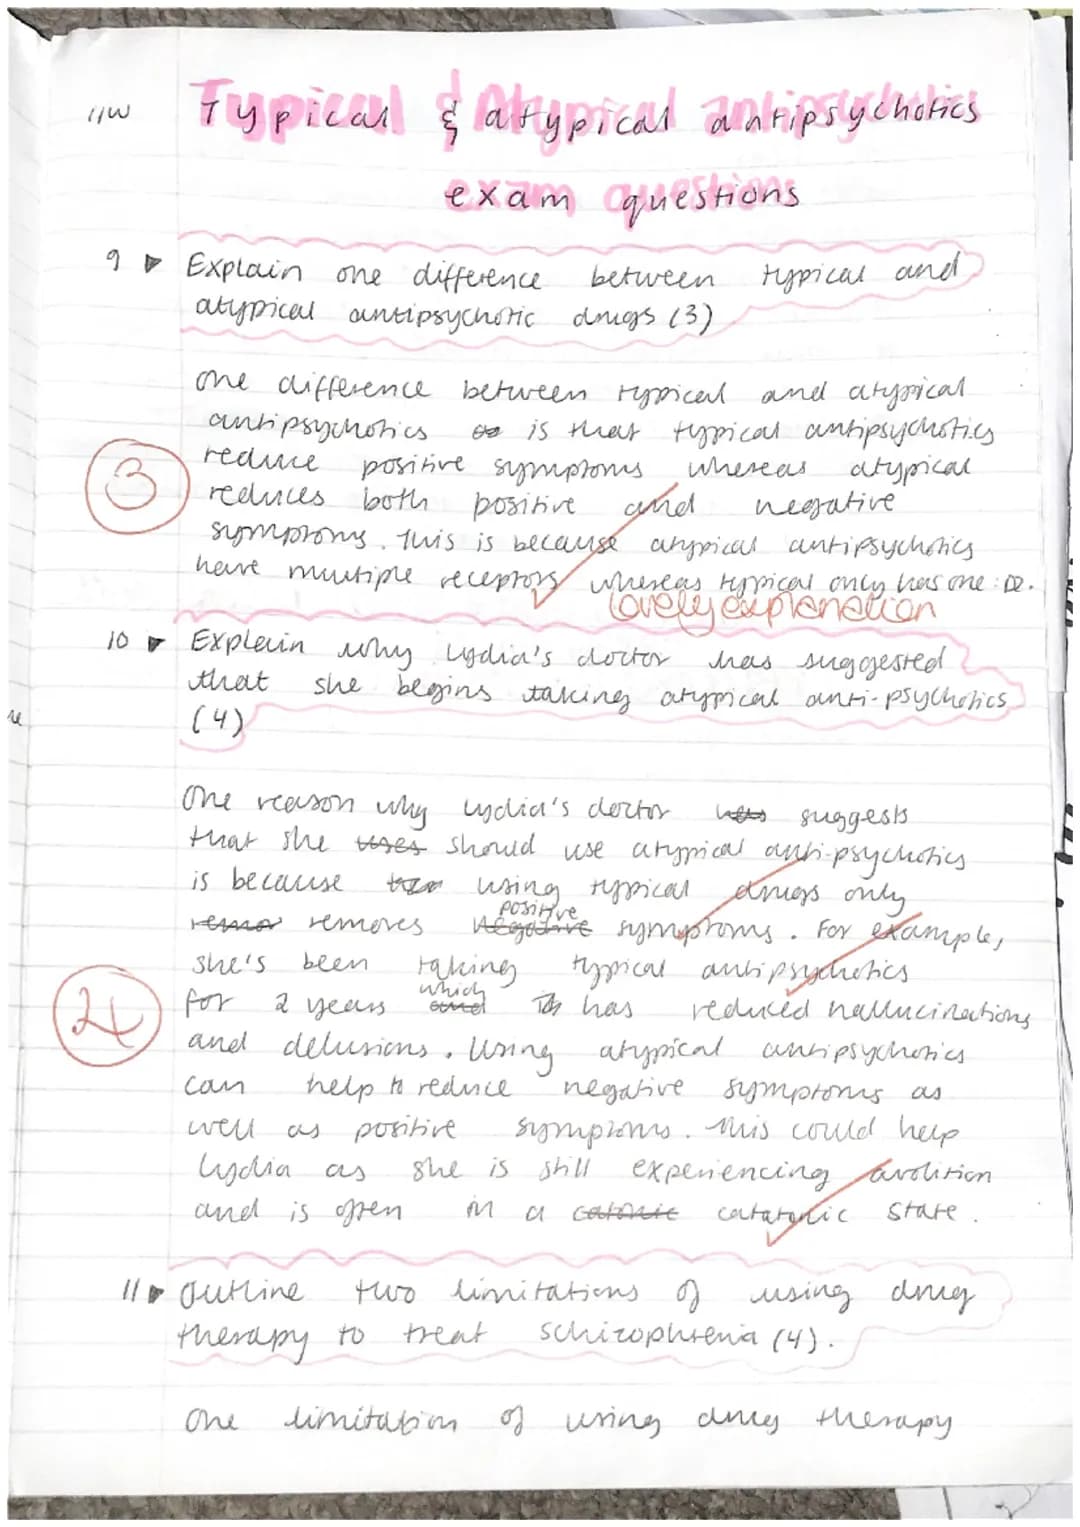 HW Typical & atypical antipsychotics
exam questions
9 ▶ Explain one difference between typical and
atypical antipsychotic drugs (3)
One difference between typical and atypical
antipsychotics is that typical antipsychotics
reduce positive symptoms whereas atypical
reduces both positive and negative
symptoms. This is because atypical antipsychotics
have multiple receptors whereas typical only has one: D2.
3
Lovely explanation
10 ▶ Explain why Lydia's doctor has suggested
that she begins taking atypical anti-psychotics
(4)
One reason why Lydia's doctor has suggests
that she uses should use atypical anti-psychotics
is because using typical drugs only
removes negative positive symptoms. For example,
she's been taking typical antipsychotics
for 2 years and which has reduced hallucinations
and delusions. Using atypical antipsychotics
can help to reduce negative symptoms as
well as positive symptoms. This could help
Lydia as she is still experiencing avolition
and is often in a catonic catatonic state.
4
11 ▶ Outline two limitations of using drug
therapy to treat schizophrenia (4).
One limitation of using drug therapy